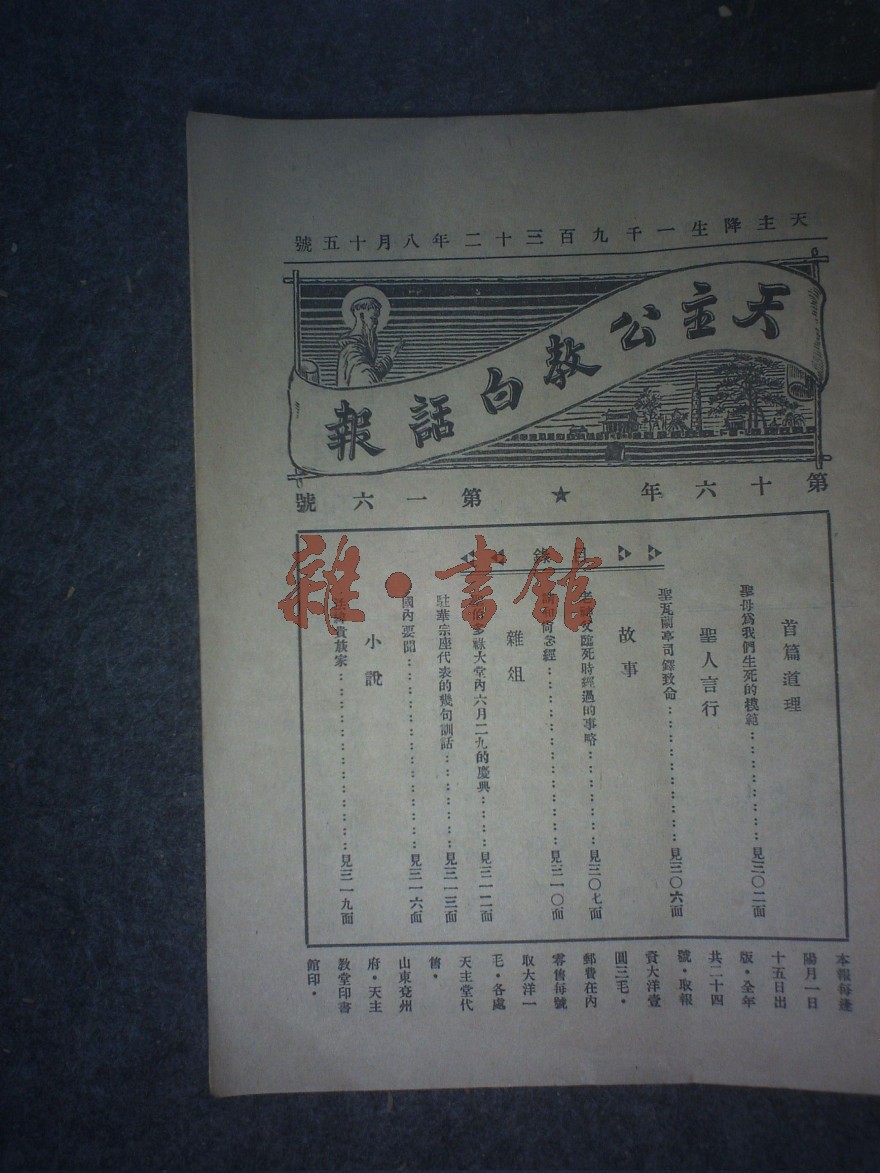 天主降生一千九百三十二年八月十五號
天主公教白話報
第十六年 ★ 第一六號
目錄
首篇道理
聖母為我們生死的模範……見三〇二面
聖人言行
聖瓦蘭亭司鐸致命……見三〇六面
故事
臨死時經過的事略……見三〇七面
和尚念經……見三一〇面
雜俎
伯多祿大堂內六月二九的慶典……見三一二面
駐華宗座代表的幾句訓話……見三一三面
國內要聞……見三一六面
小說
貴族家……見三一九面
本報每逢
陽月一日
十五日出
版·全年
共二十四
號·取報
資大洋壹
圓三毛·
郵費在內
零售每號
取大洋一
毛·各處
天主堂代
售·
山東兗州
府·天主
教堂印書
館印·
雜·書館